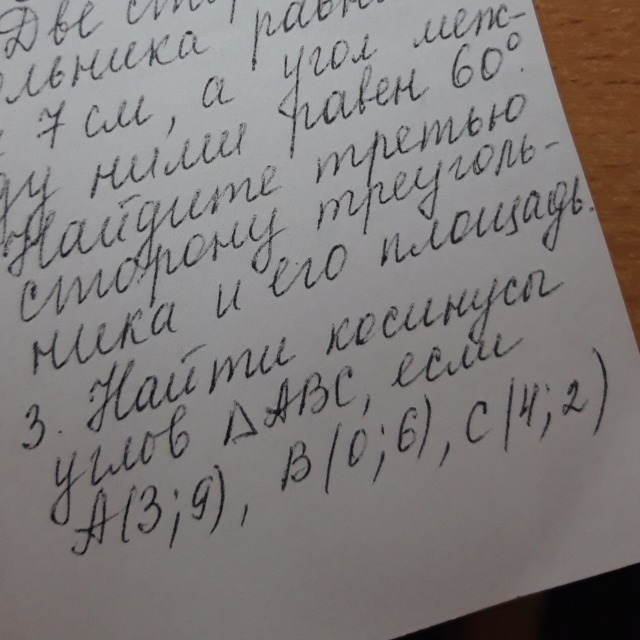 Две
равны
7 см, а угол меж-
ними равен 60°.
Найдите третью
сторону треуголь-
ника и его площадь.
3. Найти косинусы
углов △ABC, если
A(3;9), B(0;6), C(4;2)